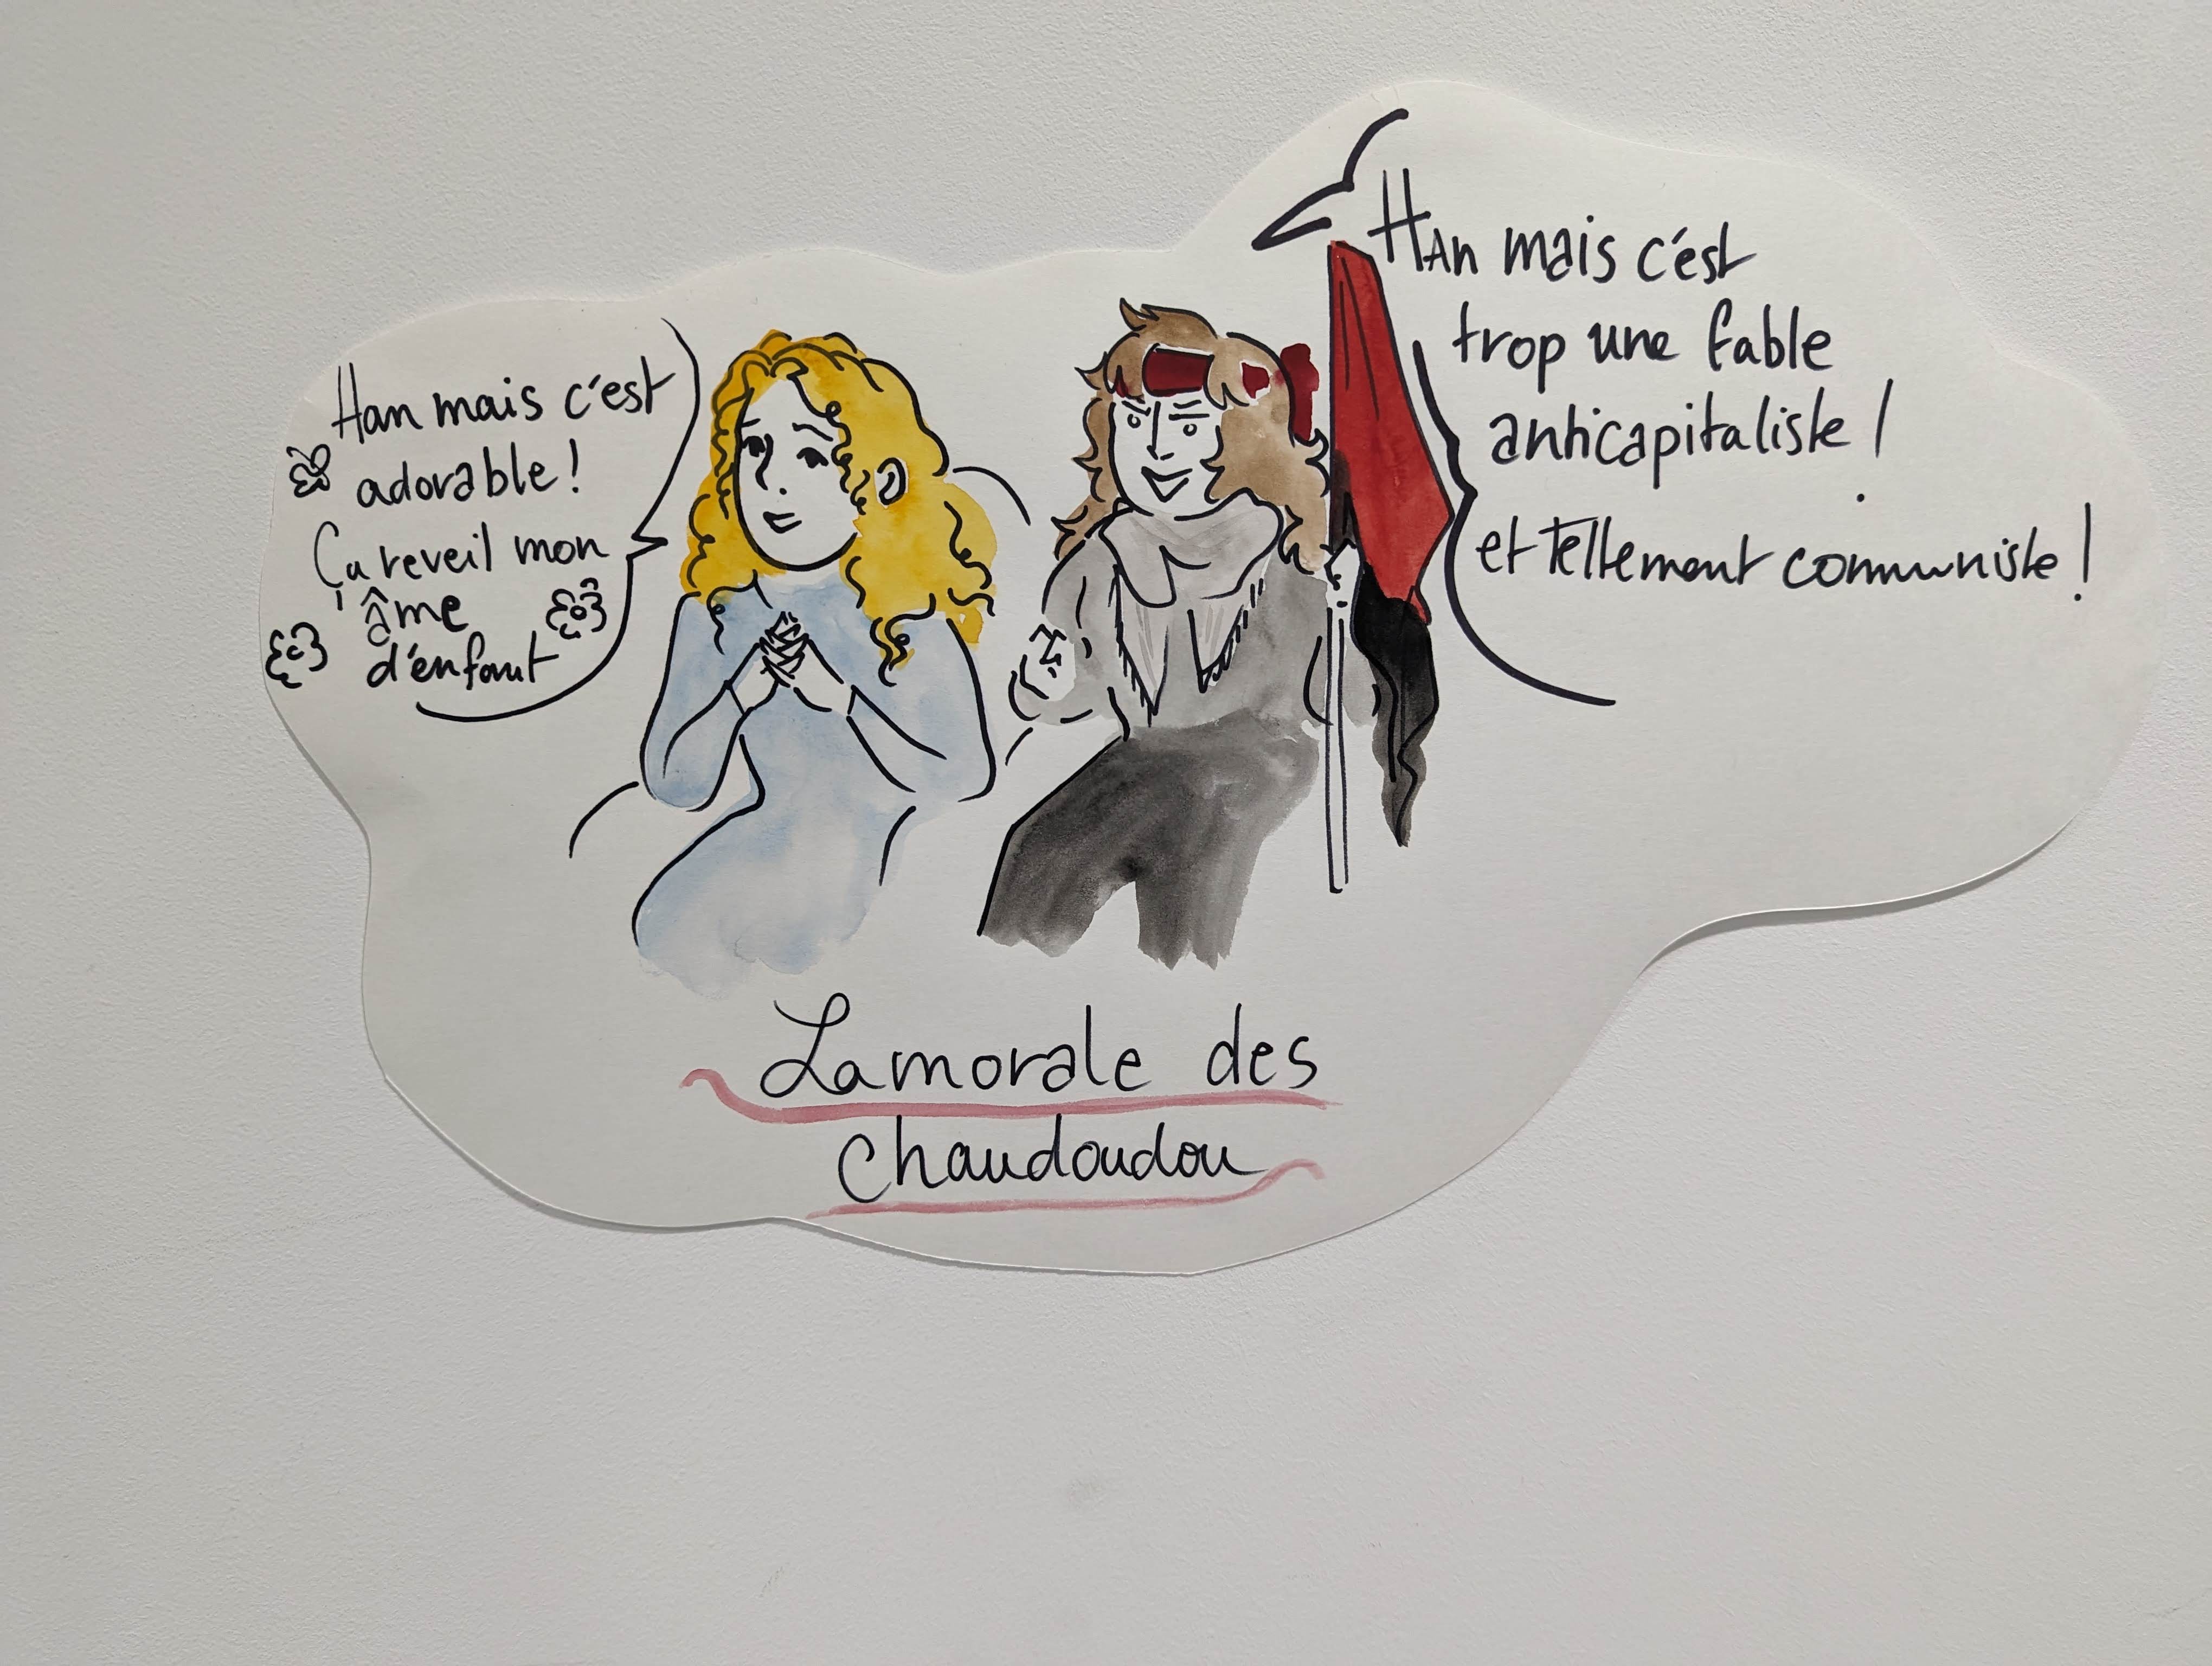 Han mais c'est
adorable !
Ça reveil mon
âme
d'enfant
HAn mais c'est
trop une fable
anticapitaliste !
et tellement communiste !
La morale des
chaudoudou